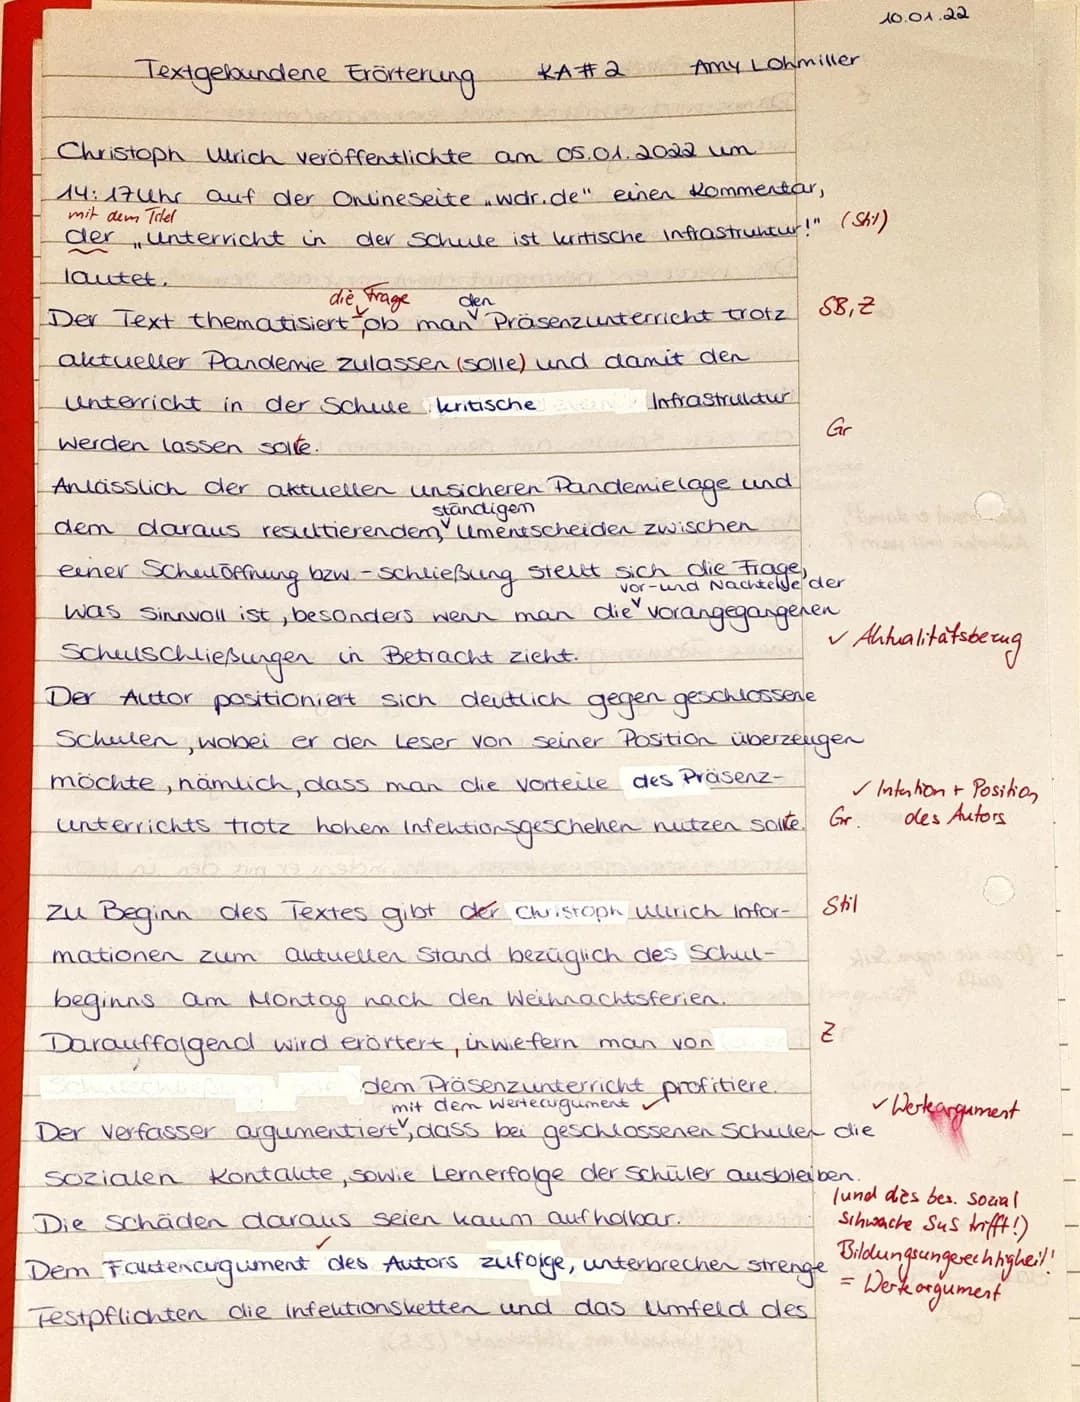 10.01.22
Textgebundene Erörterung KA#2 Amy Lohmiller
Christoph Ulrich veröffentlichte am 05.01.2022 um
14:17Uhr auf der Onlineseite „wdr.de" einen Kommentar,
mit dem Titel
der „Unterricht in der Schule ist kritische Infrastruktur!" (Stil)
lautet.
die Frage den
Der Text thematisiert, ob man Präsenzunterricht trotz SB, Z
aktueller Pandemie zulassen (solle) und damit den
Unterricht in der Schule kritische Infrastruktur
werden lassen solle. Gr
Anlässlich der aktuellen unsicheren Pandemielage und
ständigen
dem daraus resultierenden, Umentscheiden zwischen
einer Schulöffnung bzw. -schließung stellt sich die Frage,
vor-und Nachteile der
was sinnvoll ist, besonders wenn man die vorangegangenen
✓ Aktualitätsbezug
Schulschließungen in Betracht zieht.
Der Autor positioniert sich deutlich gegen geschlossene
Schulen, wobei er den Leser von seiner Position überzeugen
möchte, nämlich, dass man die Vorteile des Präsenz- ✓ Intention + Position
unterrichts trotz hohem Infektionsgeschehen nutzen solle. Gr. des Autors
Zu Beginn des Textes gibt der Christoph Ullrich Infor- Stil
mationen zum aktuellen Stand bezüglich des Schul-
beginns am Montag nach den Weihnachtsferien.
Darauffolgend wird erörtert, inwiefern man von Z
dem Präsenzunterricht profitiere.
mit dem Werteargument ✓
✓ Werteargument
Der Verfasser argumentiert, dass bei geschlossenen Schulen die
sozialen Kontakte, sowie Lernerfolge der Schüler ausbleiben.
(und dies bes. sozial
Die Schäden daraus seien kaum aufholbar. schwache SuS trifft!)
✓ Bildungsungerechtigkeit!
Dem Faktenargument des Autors zufolge, unterbrechen strenge = Werteargument
Testpflichten die Infektionsketten und das Umfeld des